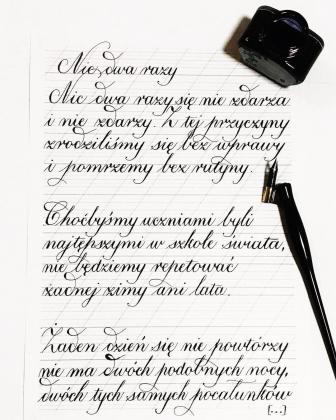 Nic dwa razy
Nic dwa razy się nie zdarza
i nie zdarzy. Z tej przyczyny
zrodziliśmy się bez wprawy
i pomrzemy bez rutyny.
Choćbyśmy uczniami byli
najtępszymi w szkole świata,
nie będziemy repetować
żadnej zimy ani lata.
Żaden dzień się nie powtórzy
nie ma dwóch podobnych nocy,
dwóch tych samych pocałunków
[...]